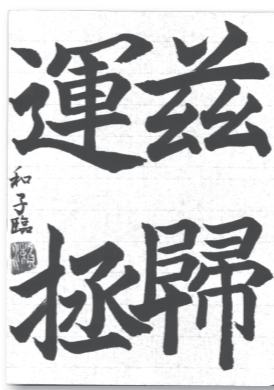 茲歸
運拯
和子臨